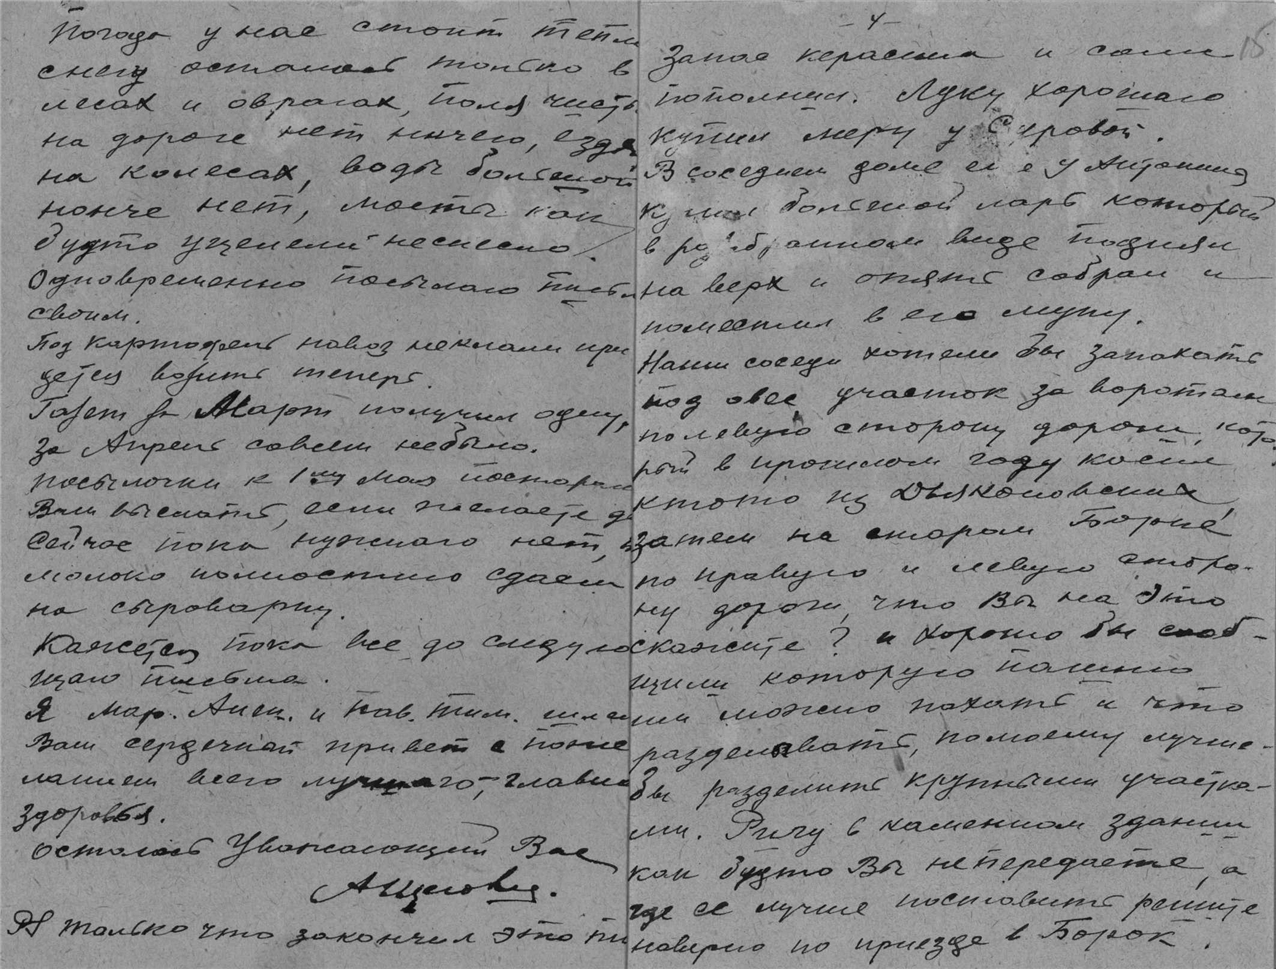 Погода у нас стоит тепл
снегу осталось только в
лесах и оврагах, поля чисты
на дороге нет ничего, ездя
на колесах, воды большой
нонче нет, мосты как
будто уцелели неснесло.
Одновременно посылаю письм
своим.
Под картофель навоз неклали при
детея возить теперь.
Газет за Март получил одну,
за Апрель совсем небыло.
посылочки к 1му Мая постораем
Вам выслать, если желаете д
сейчас пока нужнаго нет,
молоко полностию сдаем
на сыроварну.
Кажется пока все до следую
щаго письма.
Я Мар. Алек. и Пав. Тим. шлем
Вам сердечный привет с поже
ланием всего лучшаго, главно
здоровья.
остаюсь Уважающий Вас
АЩеглов.
PS только что закончил это пи
-4-
15
запас керасина и соли
пополнил. Луку хорошаго
купил меру у Суровой.
В соседнем доме ее у Антонины
купил большой ларь который
в разобранном виде подняли
на верх и опять собрал и
поместил в его муку.
Наши соседи хотели бы запахать
под овес участок за воротами
полевую сторону дороги, кото
рый в прошлом году косил
ктото из Дьяконовских,
затем на старом Борке
по правую и левую сторо-
ну дороги, что Вы на это
скажите? и хорошо бы сооб-
щили которую пашню
им можно пахать и что
разделывать, помоему лучше-
бы разделить крупными участка-
ми. Ригу в каменном здании
как будто Вы непередаете, а
где ее лучше поставить решите
наверно по приезде в Борок.